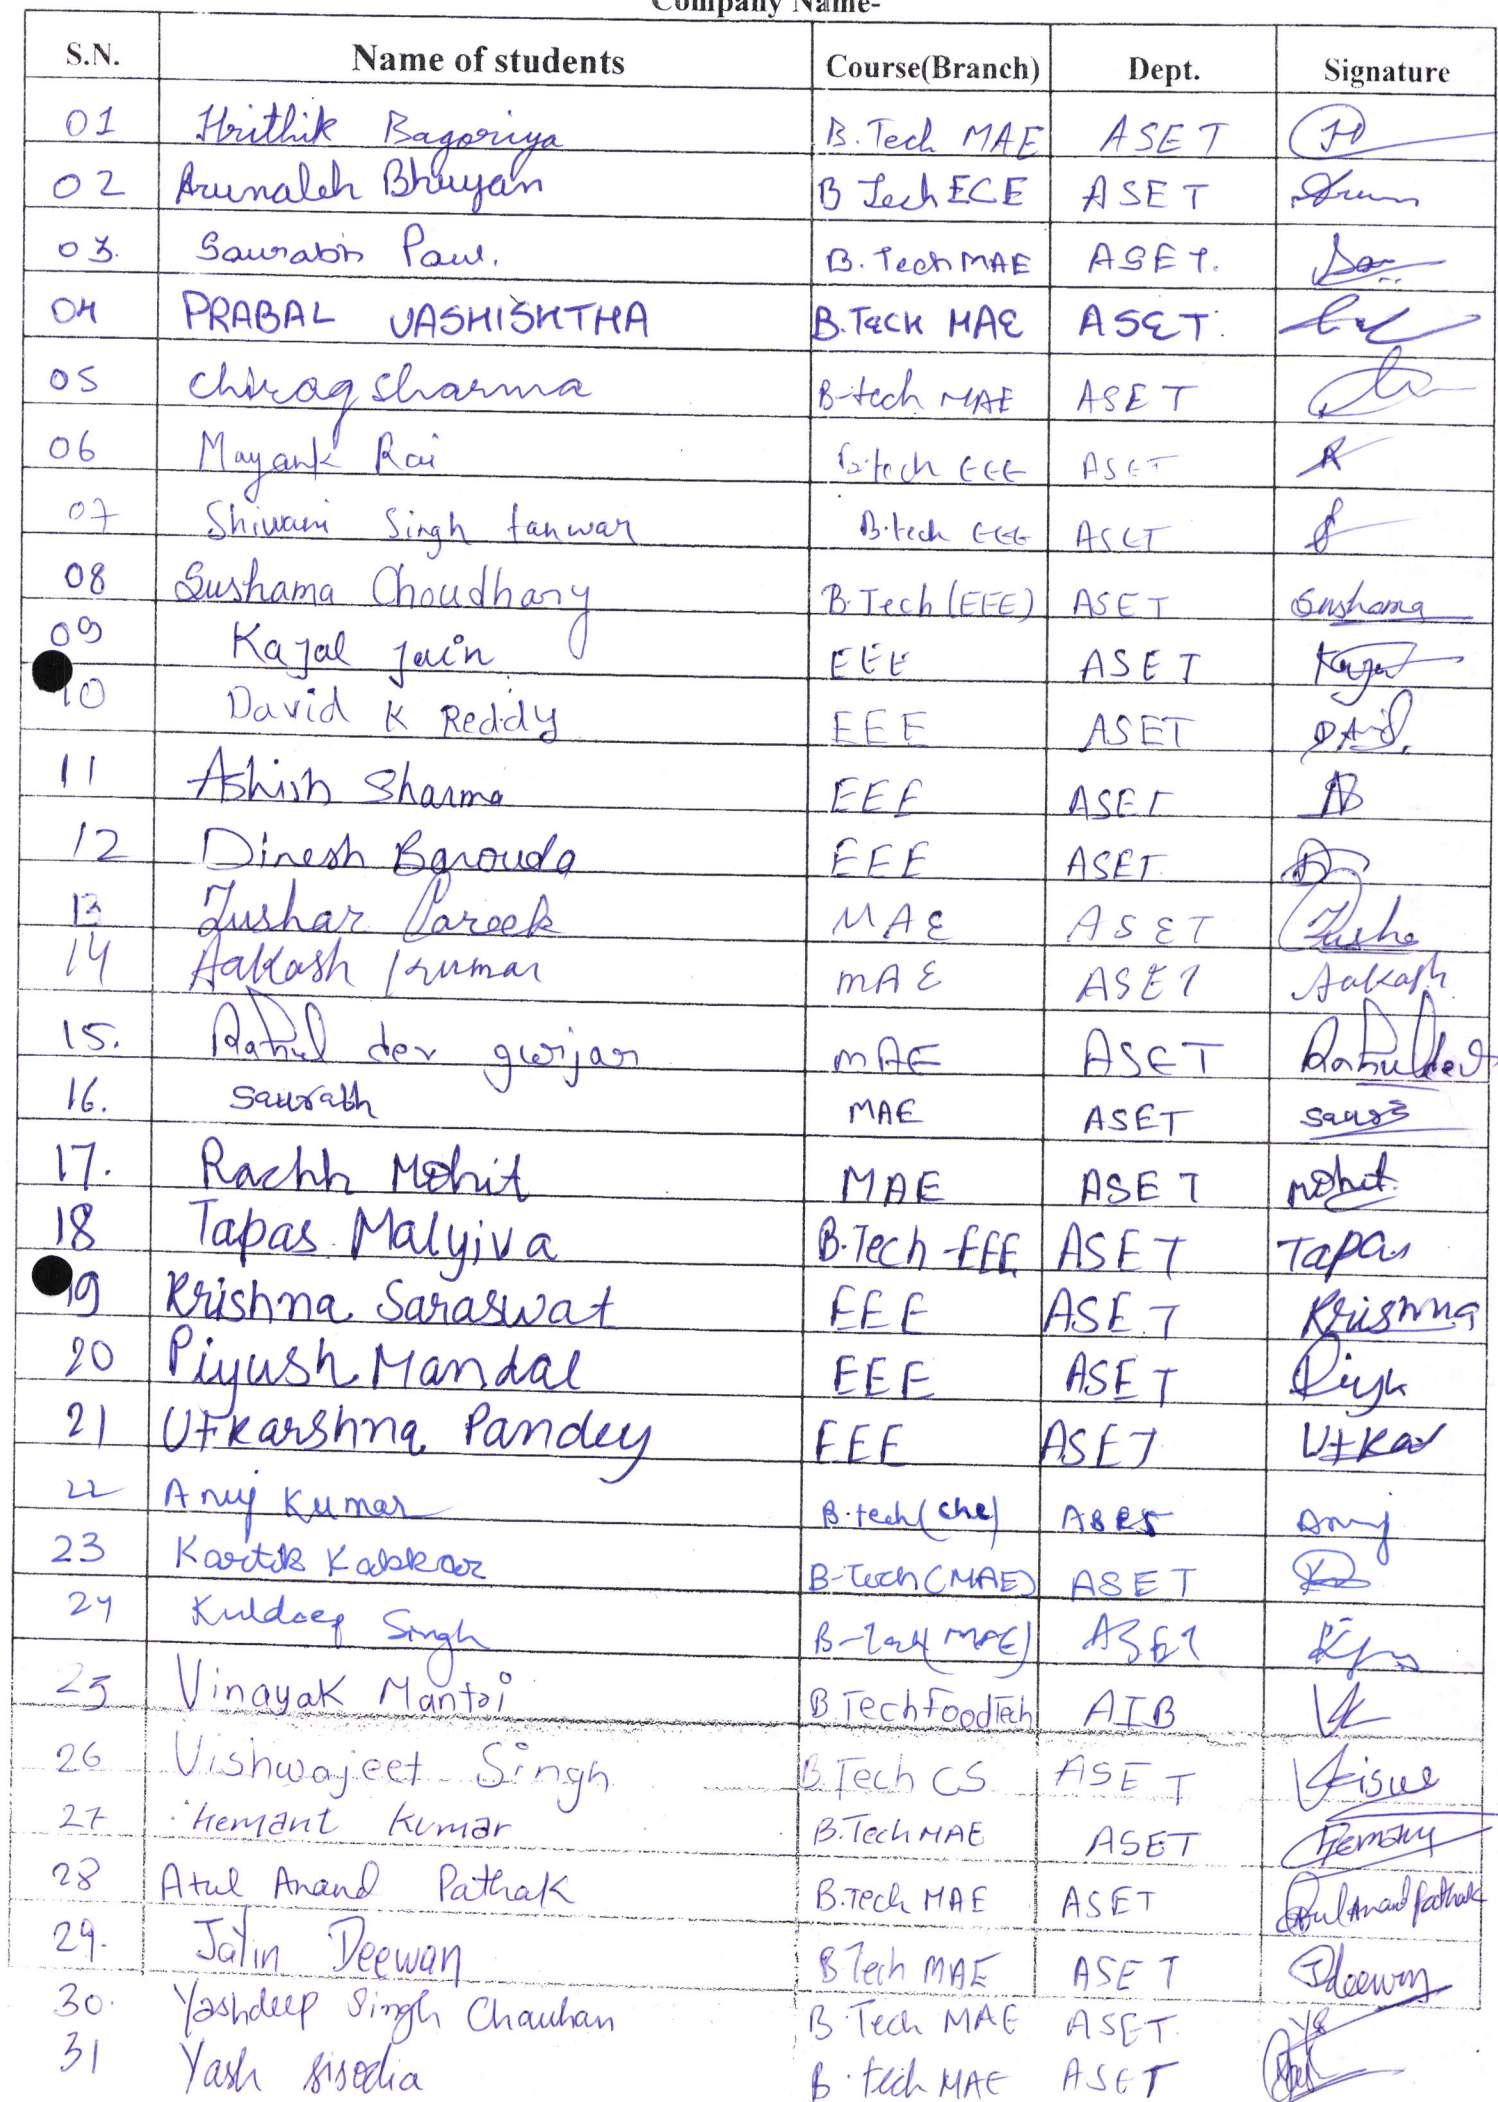 Company Name-
S.N. Name of students Course(Branch) Dept. Signature
01 Hrithik Bagoriya B.Tech MAE ASET
02 Arunabh Bhuyan B Tech ECE ASET Arun
03. Saurabh Paul. B.Tech MAE ASET.
04 PRABAL VASHISHTHA B.TECH MAE ASET.
05 Chirag Sharma B-tech MAE ASET
06 Mayank Rai B.tech EEE ASET
07 Shivani Singh tanwar B.tech EEE ASET
08 Sushama Choudhary B.Tech (EEE) ASET Sushama
09 Kajal Jain EEE ASET Kajal
10 David K Reddy EEE ASET
11 Ashish Sharma EEE ASET
12 Dinesh Barouda EEE ASET
13 Tushar Pareek MAE ASET Tusha
14 Aakash Kumar MAE ASET Aakash
15. Rahul dev gurjar MAE ASET Rahul dev
16. Saurabh MAE ASET
17. Rachh Mohit MAE ASET Mohit
18 Tapas Malviya B.Tech-EEE ASET Tapas
19 Krishna Saraswat EEE ASET Krishna
20 Piyush Mandal EEE ASET
21 Utkarshna Pandey EEE ASET Utkar
22 Anuj Kumar B.tech(che) Anuj
23 Kartik Kakkar B-Tech(MAE) ASET
24 Kuldeep Singh B-Tech(MAE) ASET
25 Vinayak Mantri B.Tech FoodTech AIB
26 Vishwajeet Singh B.Tech CS ASET
27 Hemant Kumar B.Tech MAE ASET Hemant
28 Atul Anand Pathak B.Tech MAE ASET Atul Anand Pathak
29. Jatin Deewan B Tech MAE ASET JDeewan
30. Yashdeep Singh Chauhan B.Tech MAE ASET YS
31 Yash Sisodia B.tech MAE ASET